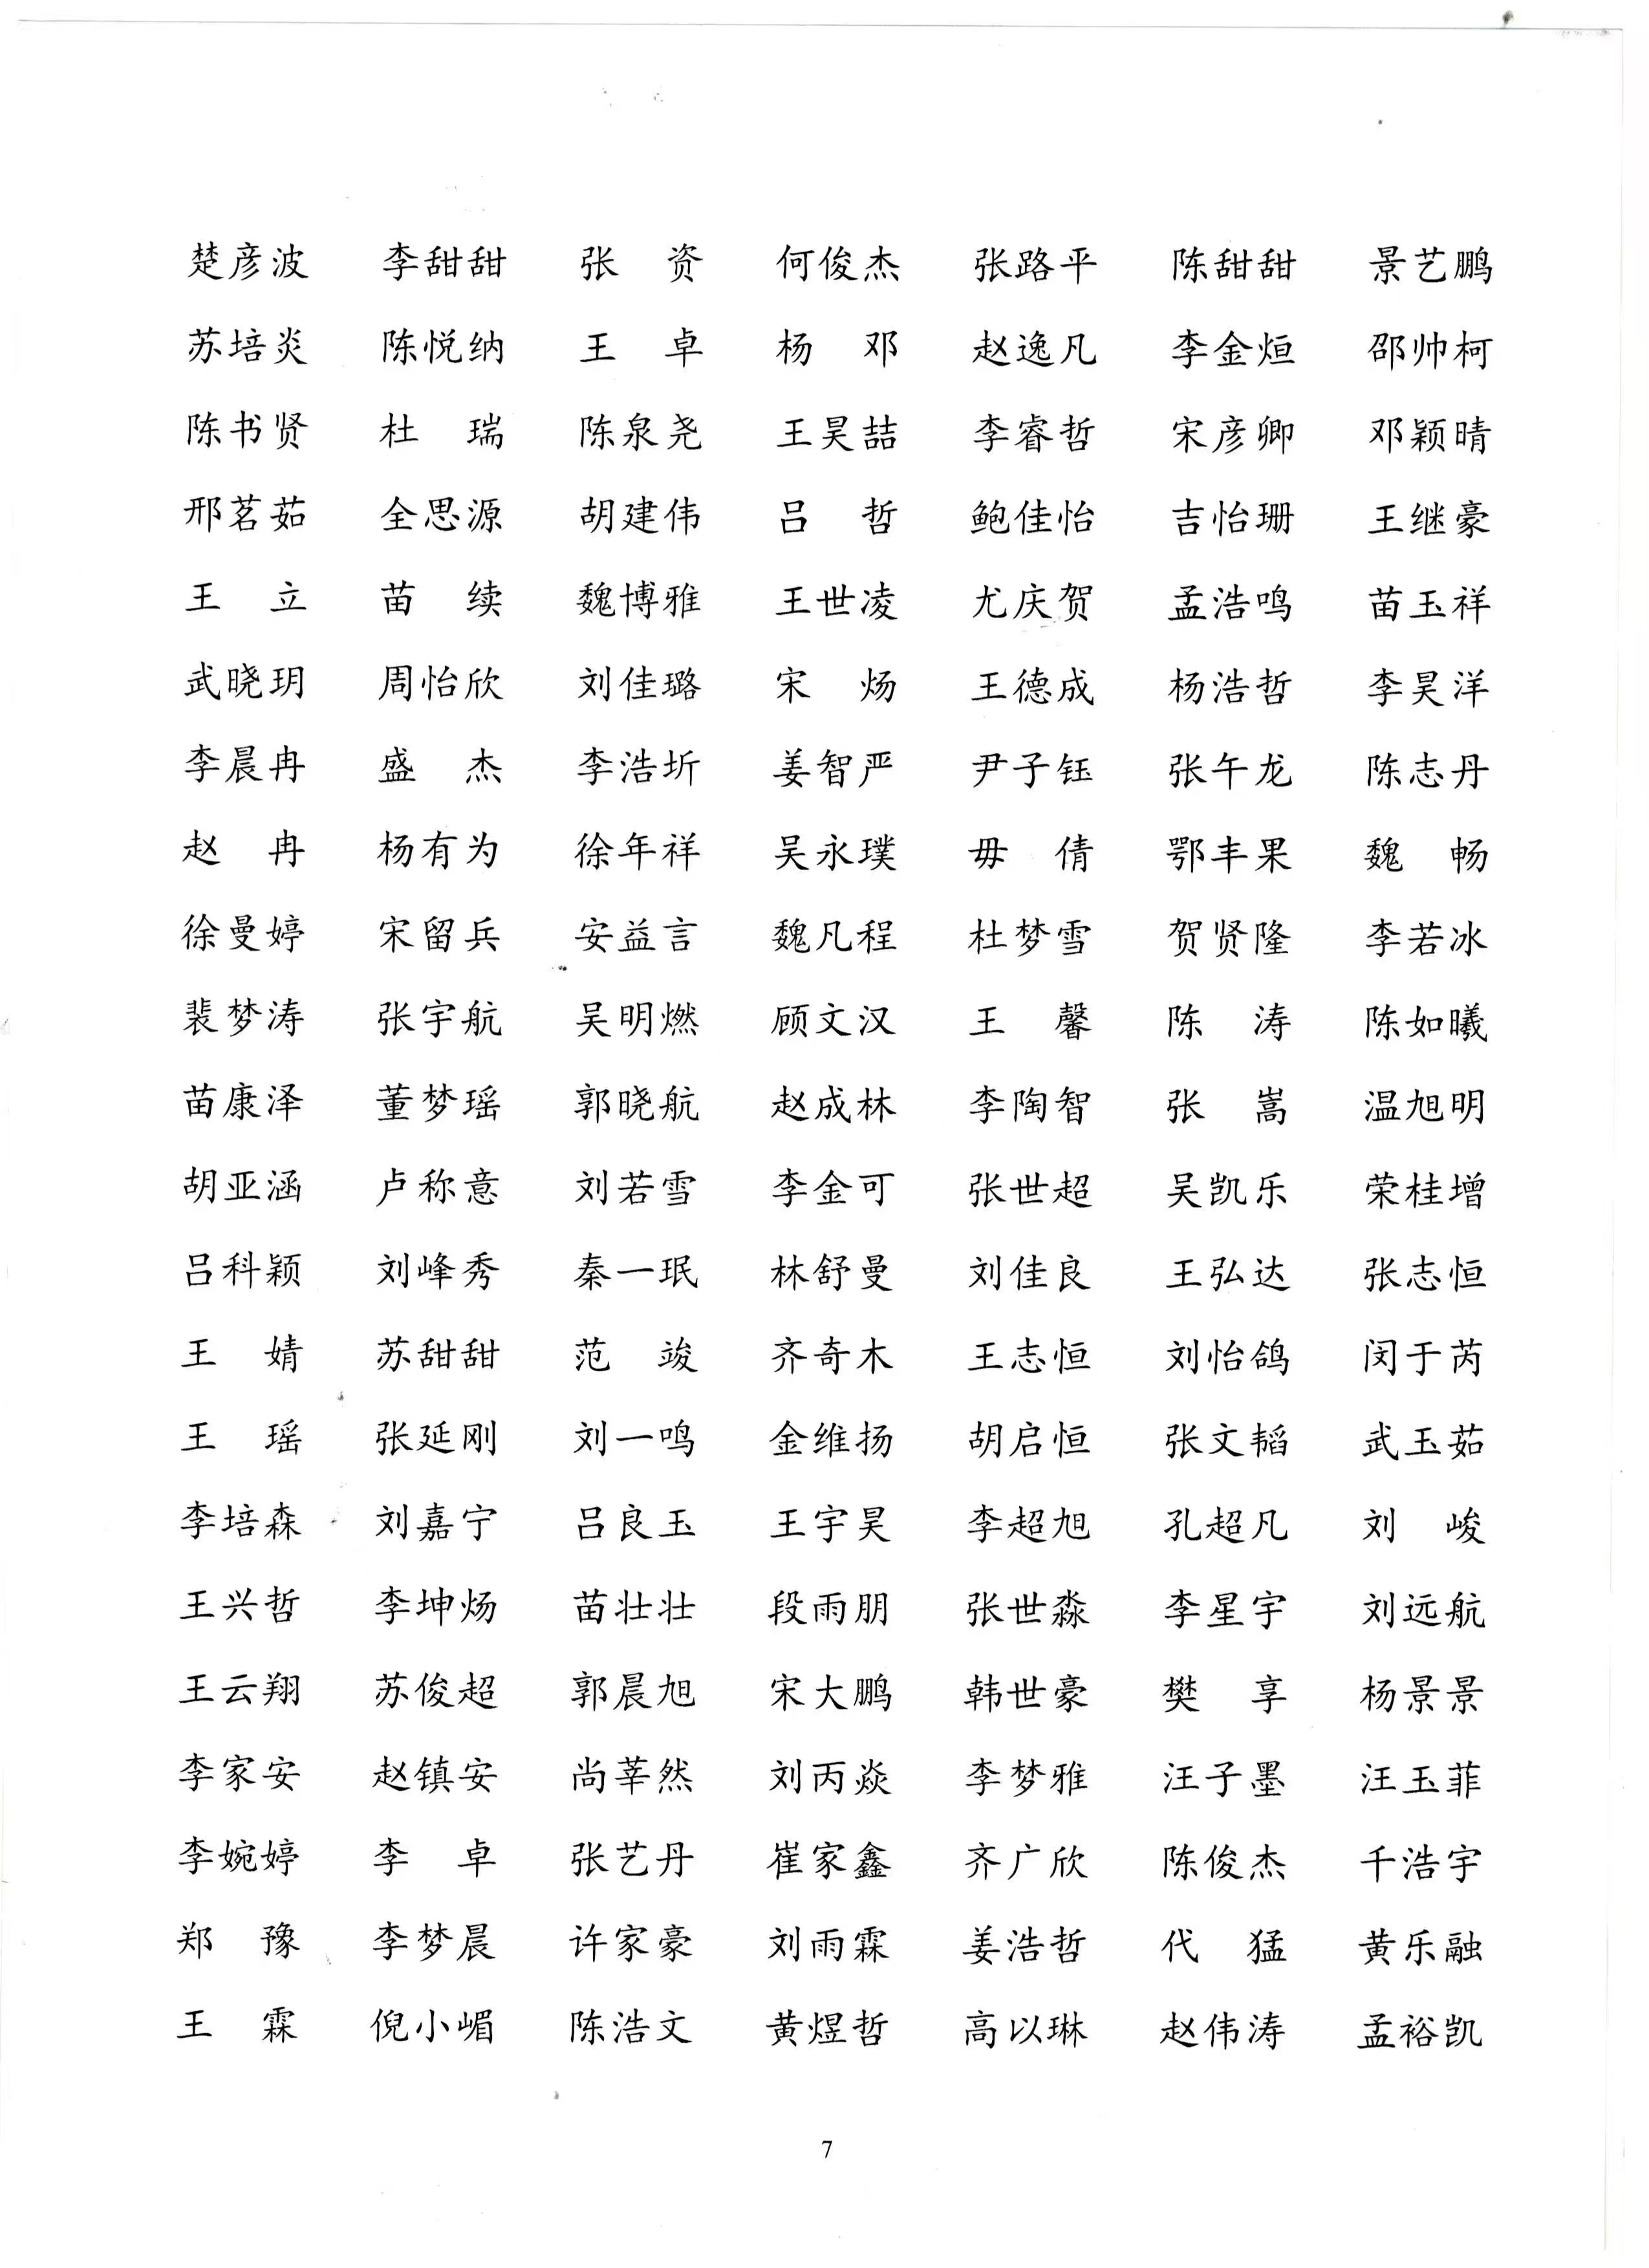 楚彦波 李甜甜 张　资 何俊杰 张路平 陈甜甜 景艺鹏
苏培炎 陈悦纳 王　卓 杨　邓 赵逸凡 李金烜 邵帅柯
陈书贤 杜　瑞 陈泉尧 王昊喆 李睿哲 宋彦卿 邓颖晴
邢茗茹 全思源 胡建伟 吕　哲 鲍佳怡 吉怡珊 王继豪
王　立 苗　续 魏博雅 王世凌 尤庆贺 孟浩鸣 苗玉祥
武晓玥 周怡欣 刘佳璐 宋　炀 王德成 杨浩哲 李昊洋
李晨冉 盛　杰 李浩圻 姜智严 尹子钰 张午龙 陈志丹
赵　冉 杨有为 徐年祥 吴永璞 毋　倩 鄂丰果 魏　畅
徐曼婷 宋留兵 安益言 魏凡程 杜梦雪 贺贤隆 李若冰
裴梦涛 张宇航 吴明燃 顾文汉 王　馨 陈　涛 陈如曦
苗康泽 董梦瑶 郭晓航 赵成林 李陶智 张　嵩 温旭明
胡亚涵 卢称意 刘若雪 李金可 张世超 吴凯乐 荣桂增
吕科颖 刘峰秀 秦一珉 林舒曼 刘佳良 王弘达 张志恒
王　婧 苏甜甜 范　竣 齐奇木 王志恒 刘怡鸽 闵于芮
王　瑶 张延刚 刘一鸣 金维扬 胡启恒 张文韬 武玉茹
李培森 刘嘉宁 吕良玉 王宇昊 李超旭 孔超凡 刘　峻
王兴哲 李坤炀 苗壮壮 段雨朋 张世淼 李星宇 刘远航
王云翔 苏俊超 郭晨旭 宋大鹏 韩世豪 樊　享 杨景景
李家安 赵镇安 尚莘然 刘丙焱 李梦雅 汪子墨 汪玉菲
李婉婷 李　卓 张艺丹 崔家鑫 齐广欣 陈俊杰 千浩宇
郑　豫 李梦晨 许家豪 刘雨霖 姜浩哲 代　猛 黄乐融
王　霖 倪小嵋 陈浩文 黄煜哲 高以琳 赵伟涛 孟裕凯
7